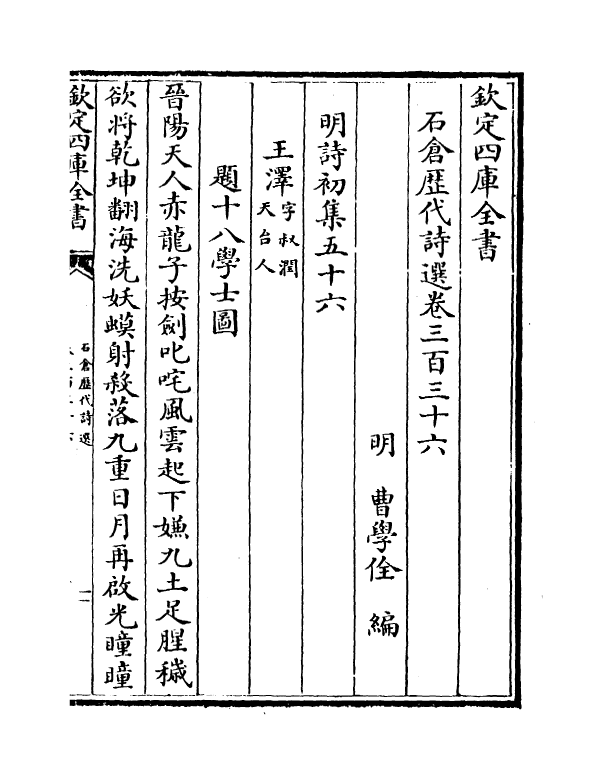 欽定四庫全書
石倉歷代詩選卷三百三十六
明 曹學佺 編
明詩初集五十六
王澤字叔潤
天台人
題十八學士圖
晉陽天人赤龍子按劍叱咤風雲起下嫌九土足腥穢
欲將乾坤翻海洗妖蟆射殺落九重日月再啟光曈曈
欽定四庫全書
石倉歷代詩選